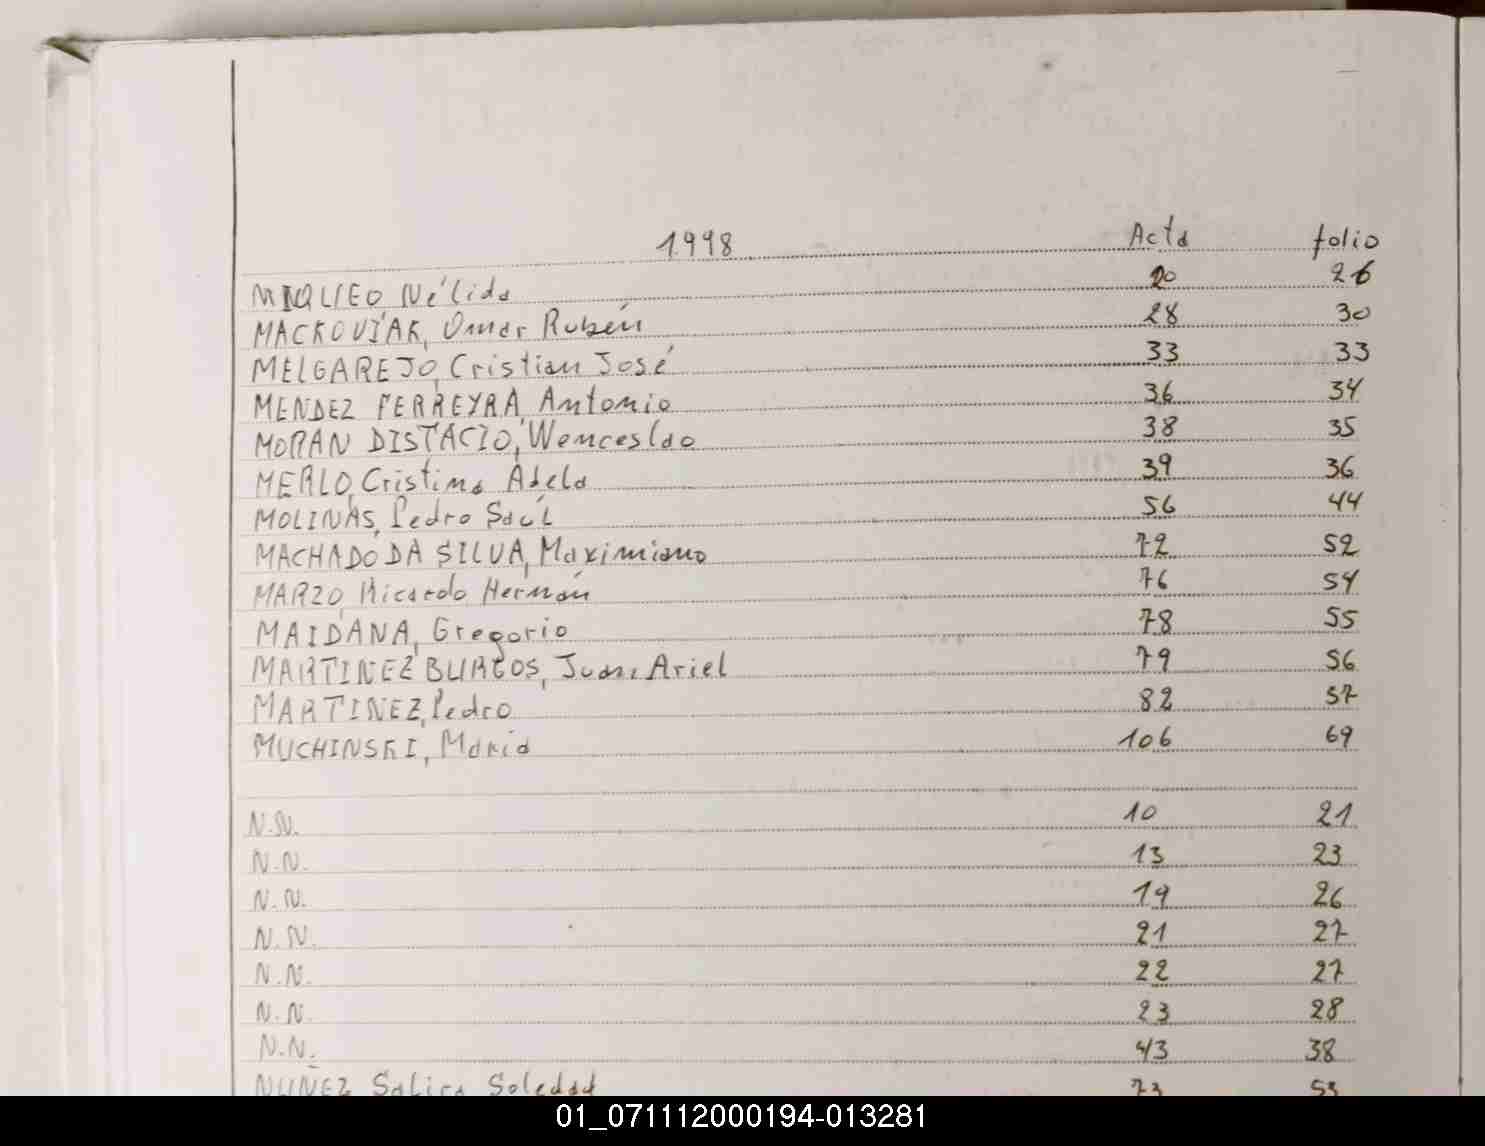 1998 Acta folio
MIQLIEO Nélida 20 26
MACKOVIAK, Omar Rubén 28 30
MELGAREJO, Cristian José 33 33
MENDEZ FERREYRA, Antonio 36 34
MORAN DISTACIO, Wenceslao 38 35
MERLO, Cristina Adela 39 36
MOLINAS, Pedro Saúl 56 44
MACHADO DA SILVA, Maximiano 72 52
MARZO, Ricardo Hernán 76 54
MAIDANA, Gregorio 78 55
MARTINEZ BURGOS, Juan Ariel 79 56
MARTINEZ, Pedro 82 57
MUCHINSKI, María 106 69
N.N. 10 21
N.N. 13 23
N.N. 19 26
N.N. 21 27
N.N. 22 27
N.N. 23 28
N.N. 43 38
NUÑEZ Soledad 73 53
01_071112000194-013281